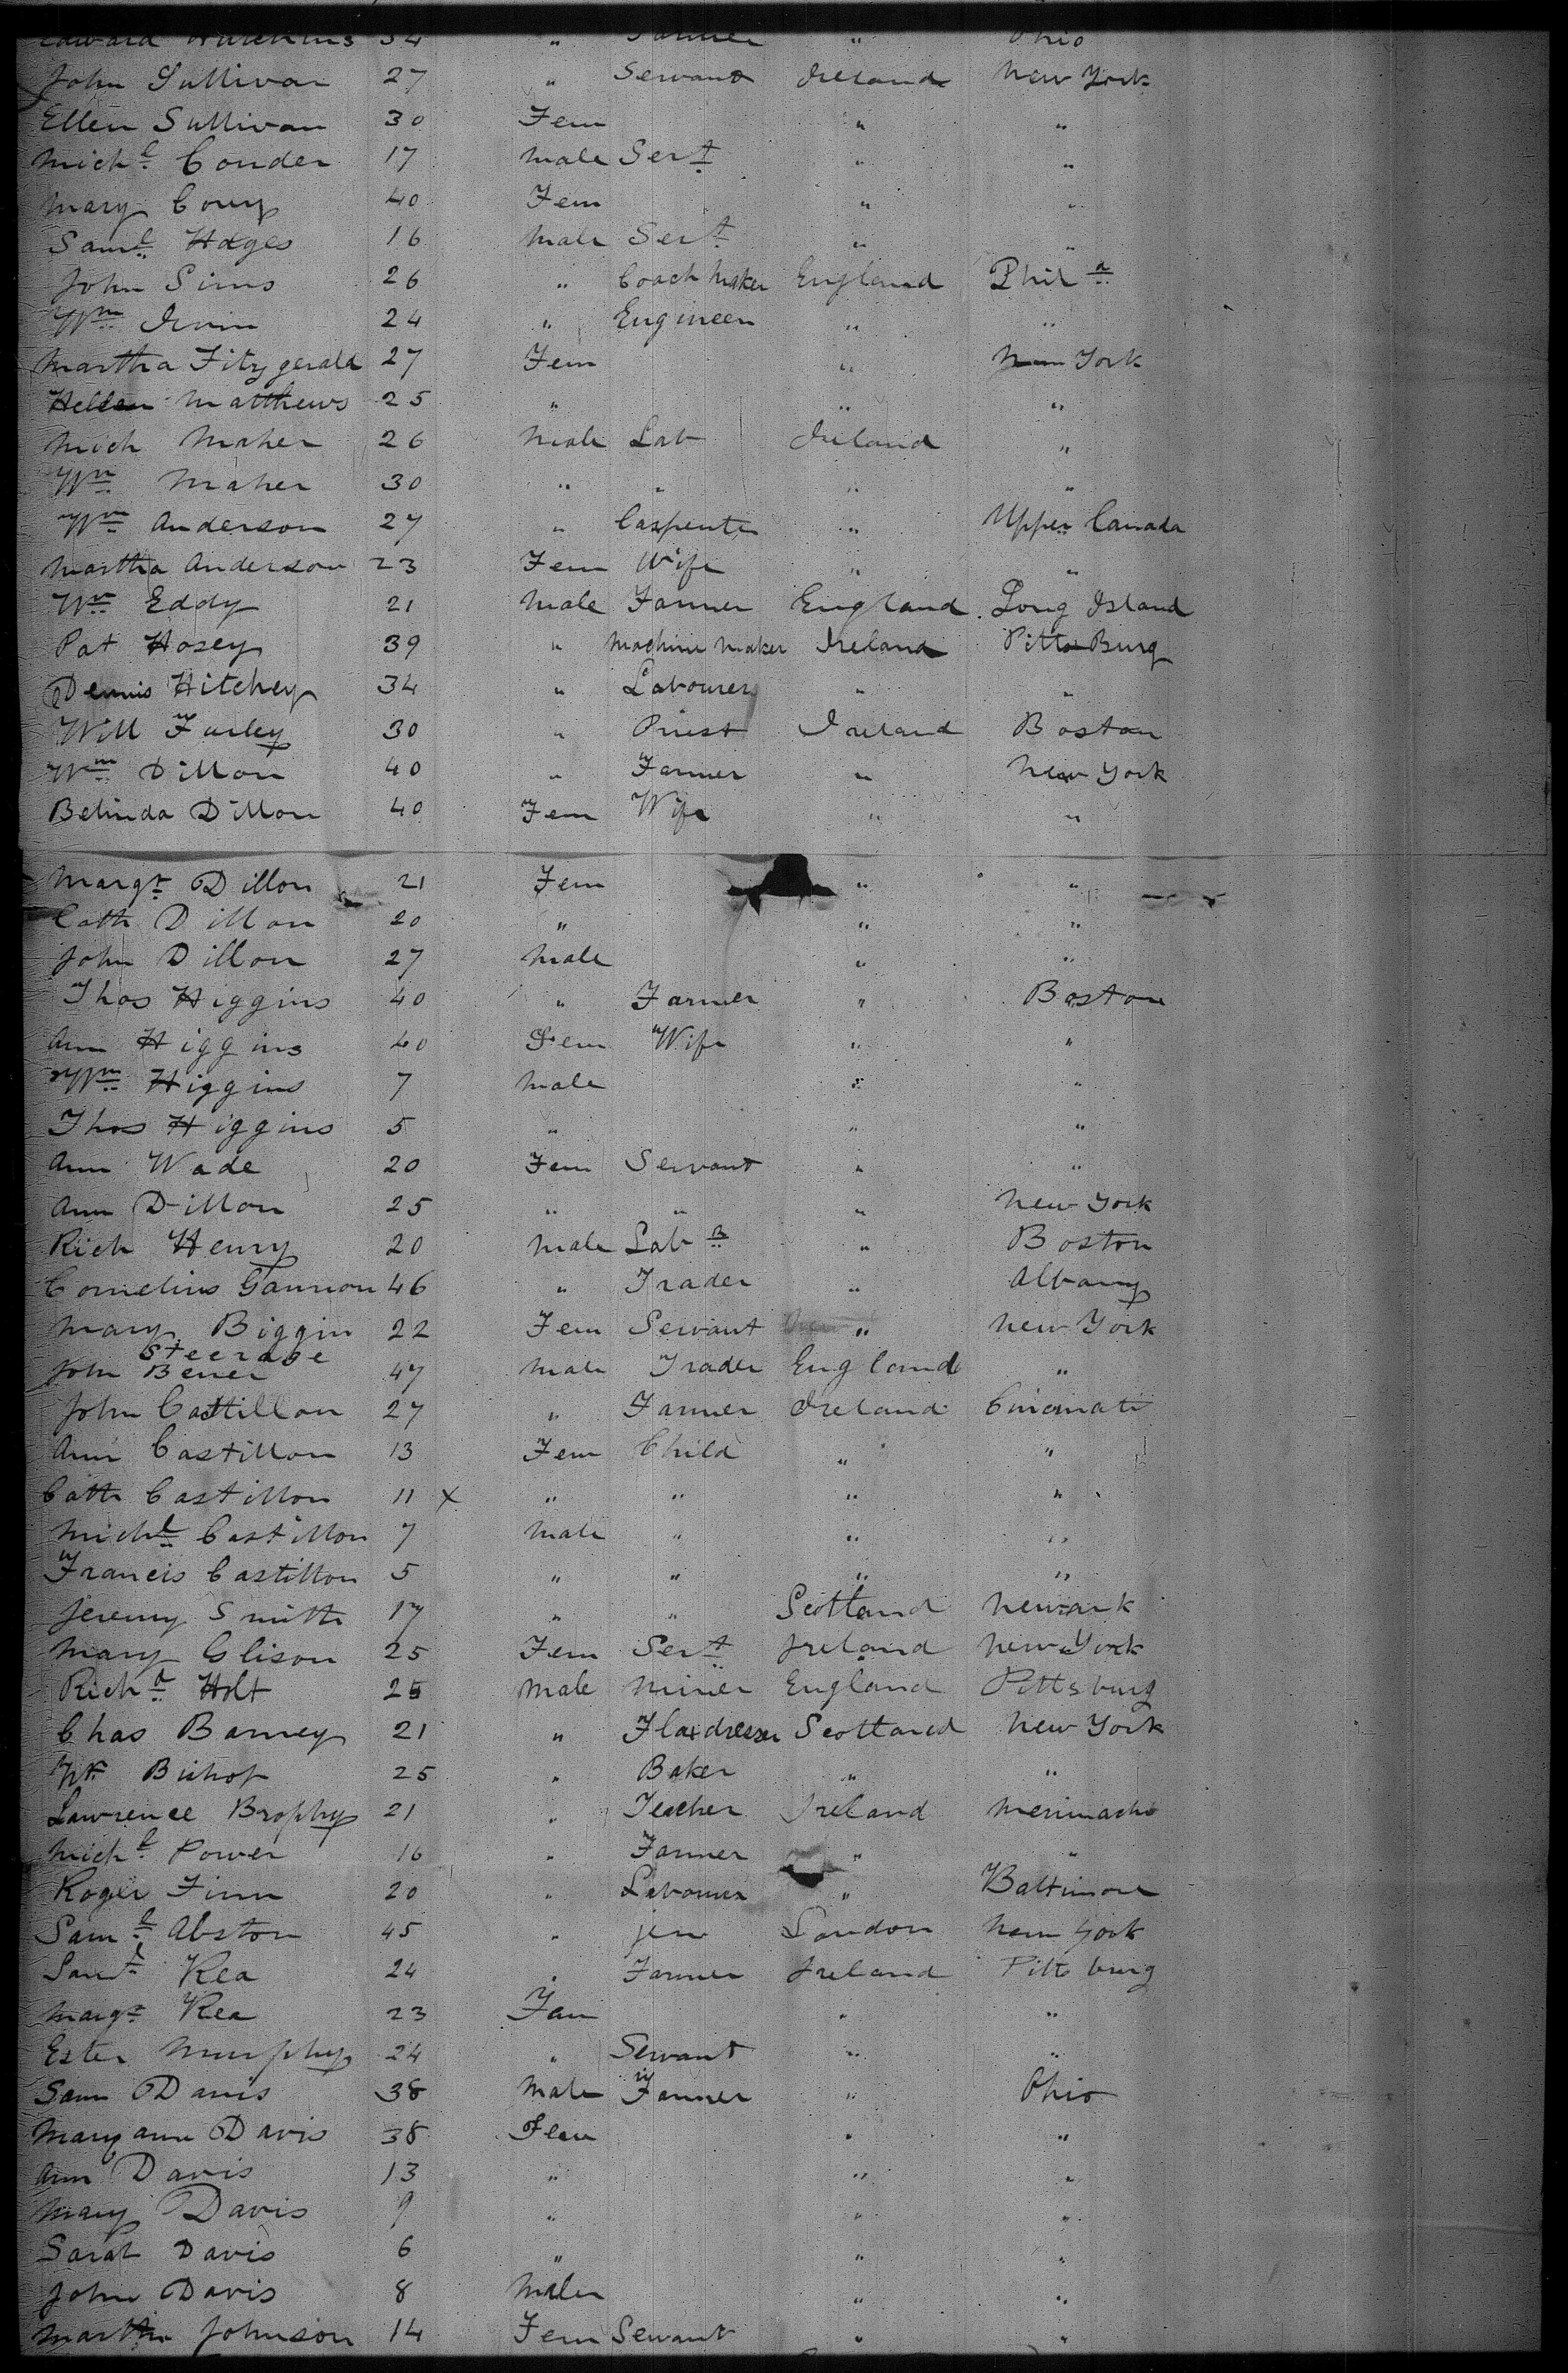 Edward Hutchins 34 " Farmer " Ohio
John Sullivan 27 " Servant Ireland New York
Ellen Sullivan 30 Fem " "
Michl Conder 17 Male Sert " "
Mary Coury 40 Fem " "
Saml Hoges 16 Male Sert " "
John Sims 26 " Coach Maker England Phila
Wm Irvin 24 " Engineer " "
Martha Fitzgerald 27 Fem " New York
Hellen Matthews 25 " " "
Mich Maher 26 Male Lab Ireland "
Wm Maher 30 " " " "
Wm Anderson 27 " Carpenter " Upper Canada
Martha Anderson 23 Fem Wife " "
Wm Eddy 21 Male Farmer England Long Island
Pat Hosey 39 " Machine Maker Ireland PittsBurg
Dennis Hitchey 34 " Labourer " "
Will Furley 30 " Priest Ireland Boston
Wm Dillon 40 " Farmer " New York
Belinda Dillon 40 Fem Wife " "
Margt Dillon 21 Fem " "
Cath Dillon 20 " " "
John Dillon 27 Male " "
Thos Higgins 40 " Farmer " Boston
Ann Higgins 40 Fem Wife " "
Wm Higgins 7 Male " "
Thos Higgins 5 " " "
Ann Wade 20 Fem Servant " "
Ann Dillon 25 " " " New York
Rich Henry 20 Male LabR " Boston
Cornelius Gannon 46 " Trader " Albany
Mary Biggin 22 Fem Servant " New York
Steerage
John Bener 47 Male Trader England "
John Castillon 27 " Farmer Ireland Cincinnati
Ann Castillon 13 Fem Child " "
Cath Castillon 11 x " " " "
Michl Castillon 7 Male " " "
Francis Castillon 5 " " " "
Jeremy Smith 17 " " Scotland Newark
Mary Glison 25 Fem Sert Ireland New York
Richd Holt 25 Male Miner England Pittsburg
Chas Barney 21 " Flaxdresser Scotland New York
Wm Bishop 25 " Baker " "
Lawrence Brophy 21 " Teacher Ireland Merimachi
Michl Power 16 " Farmer " "
Roger Finn 20 " Labourer " Baltimore
Saml Abston 45 " jew London New York
Saml Rea 24 " Farmer Ireland Pittsburg
Margt Rea 23 Fem " "
Ester Murphy 24 " Servant " "
Sam Davis 38 Male Farmer " Ohio
Mary ann Davis 38 Fem " "
Ann Davis 13 " " "
Mary Davis 9 " " "
Sarah Davis 6 " " "
John Davis 8 Male " "
Martha Johnson 14 Fem Servant " "